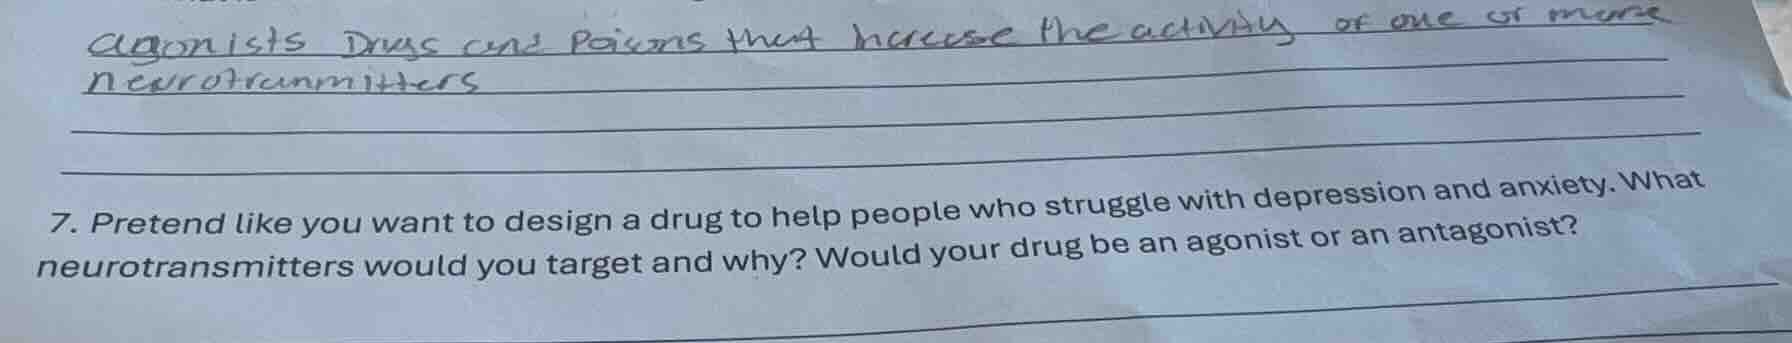 agonists Drugs and Poisons that increase the activity of one or more
neurotranmitters
7. Pretend like you want to design a drug to help people who struggle with depression and anxiety. What
neurotransmitters would you target and why? Would your drug be an agonist or an antagonist?